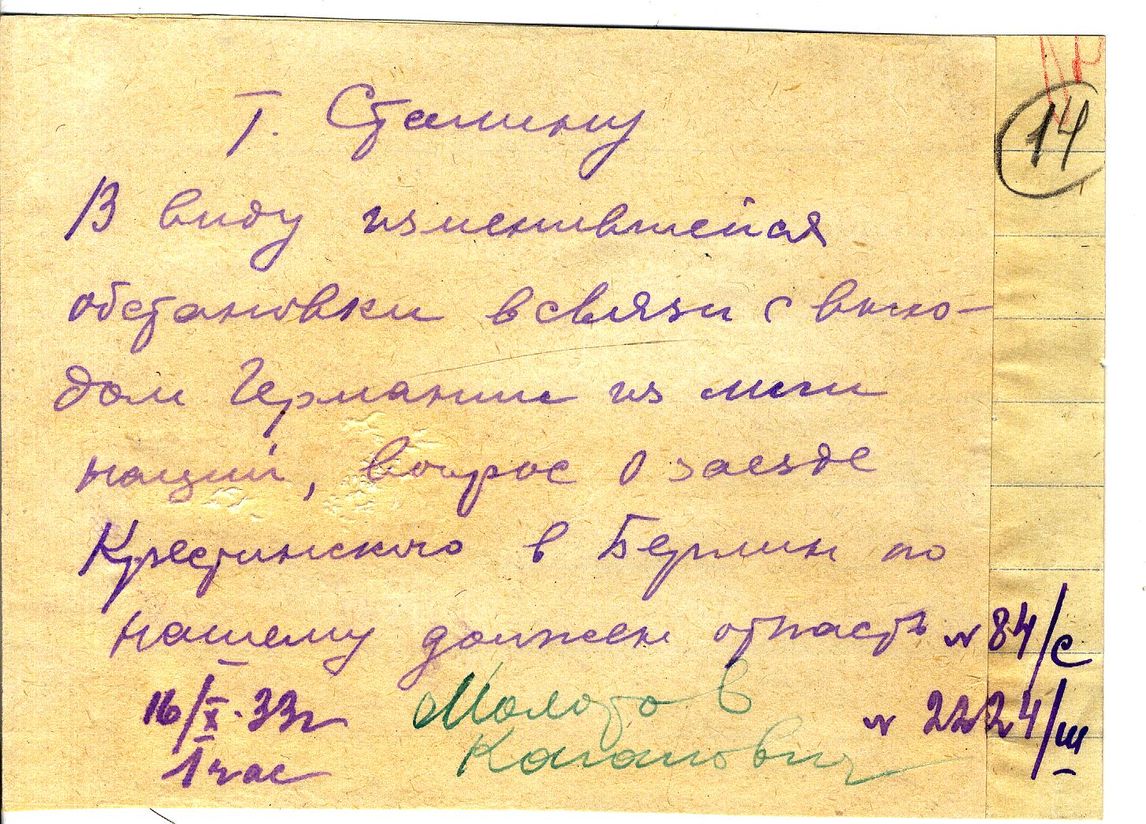 14
Т. Сталину
В виду изменившейся
обстановки в связи с выхо-
дом Германии из лиги
наций, вопрос о заезде
Крестинского в Берлин по
нашему должен отпасть № 84/с
16/X-33г Молотов № 2224/ш
1 час Каганович